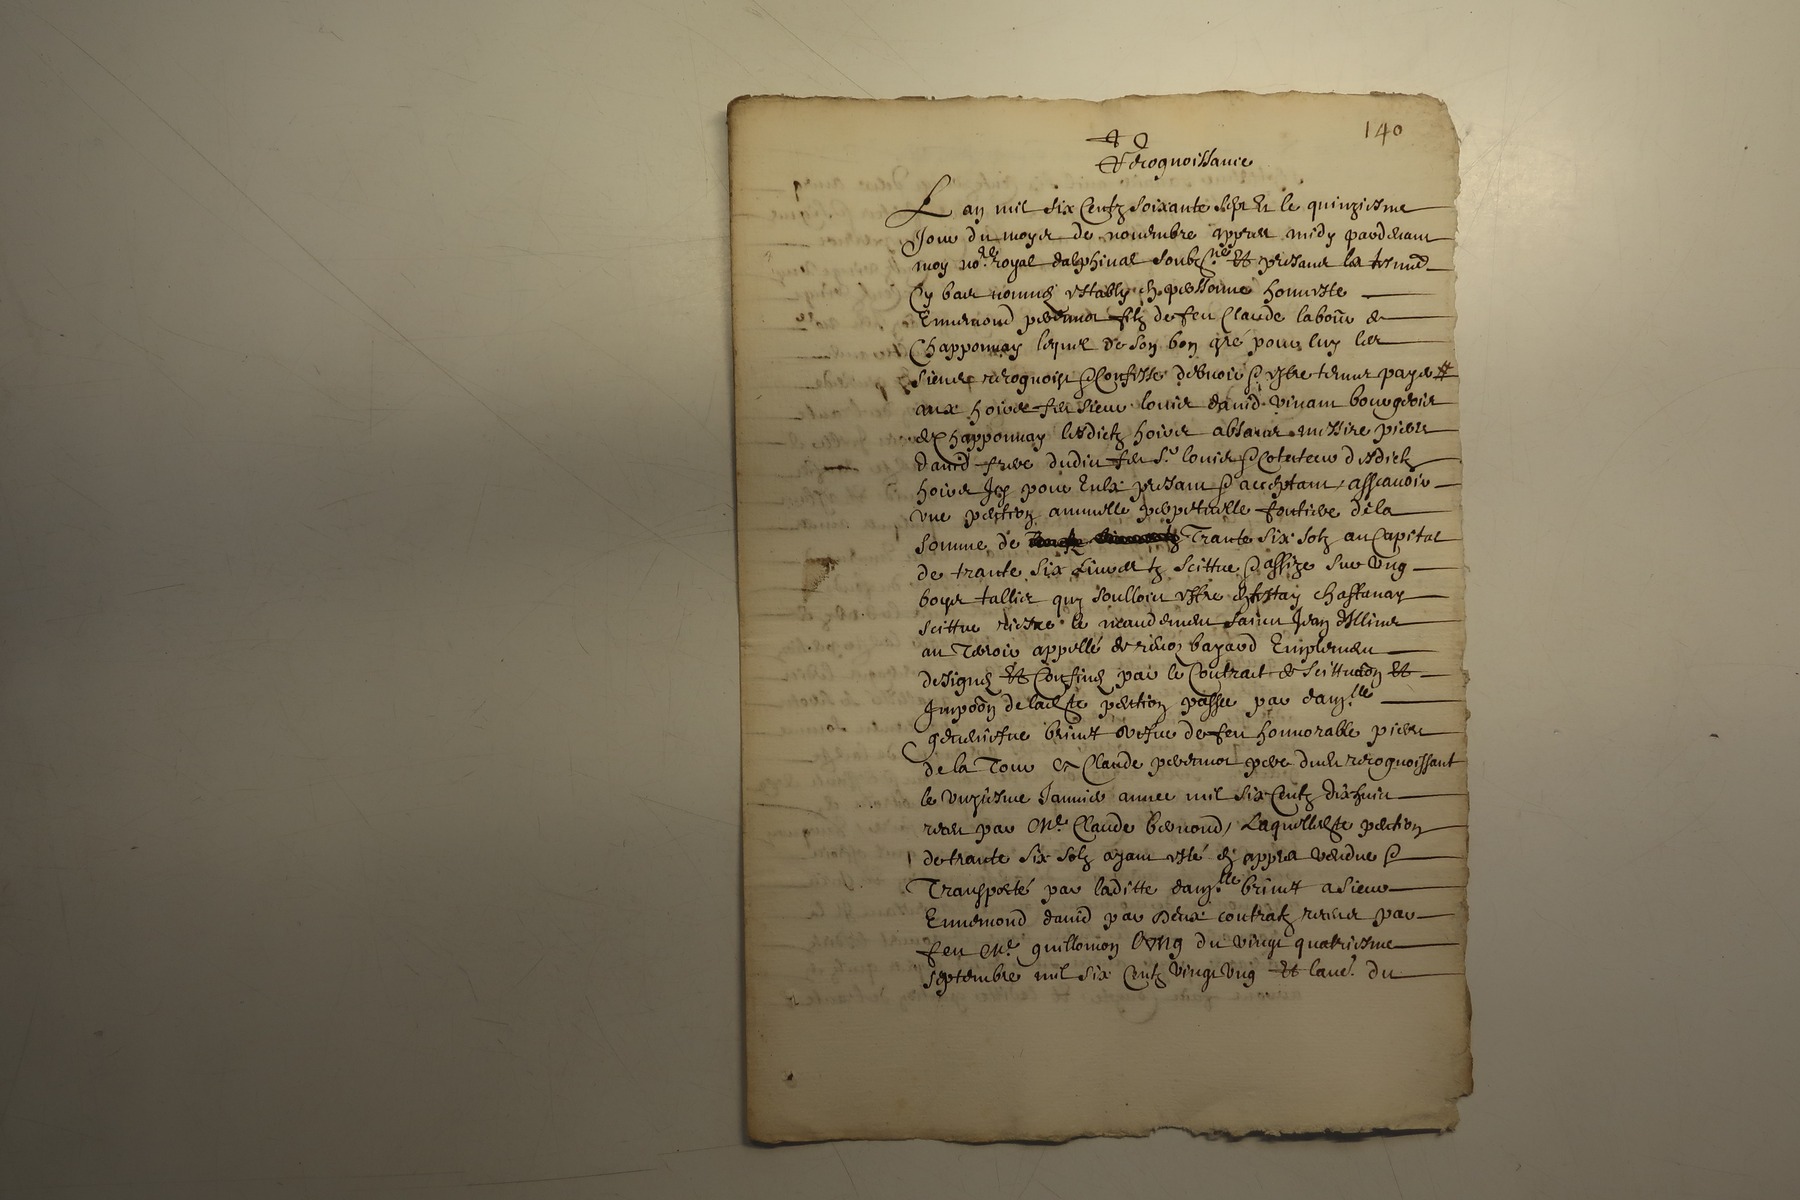 140
Recognoissance
L an mil six Centz soixante sept Et le quinziesme
Jour du moys de nouembre appres midy pardeuant
moy no.re royal dalphinal soubz.ne et presant les tesmd
Cy bas nommes estably en personne honneste
Ennemond perdernot filz de feu Claude labour de
Chapponnay lequel de son bon gré pour luy les
siens recognoist & Confesse debuoir & estre tenue payer
aux hoirs feu sieur louis dauid viuant bourgeois
de Chapponnay lesdictz hoirs absans messire pierre
dauid frere dudict feu S.r louis & Cotuteur desdictz
hoirs Icy pour Eulx presant & acceptant assauoir
vne pention annuelle perpetuelle fontiere de la
somme de Trante six solz au Capital
de trante six Liures tz scittue & assize sur vng
boys tallis quy soulloit estre chastaneraye
scittue riere le mandement sainct Jean
au Terroir appellé de bayard Emplement
designe et Confiné par le Contract de scittuaõn et
Impoõn de ladicte pention passee par dam.lle
geneuiefue brunet vefue de feu honnorable pierre
de la Tour et Claude perdernot pere dudict recognoissant
le vnziesme Januier annee mil six Centz dixhuict
receu par Me. Claude bernond, Laquelle dicte pention
de trante six solz ayant esté en appres vendue &
Transporté par laditte dam.lle brunet a sieur
Ennemond dauid par deux contratz receus par
feu Me. guillomon du vingt quatriesme
septembre mil six Centz vingt vng et lauc.e du